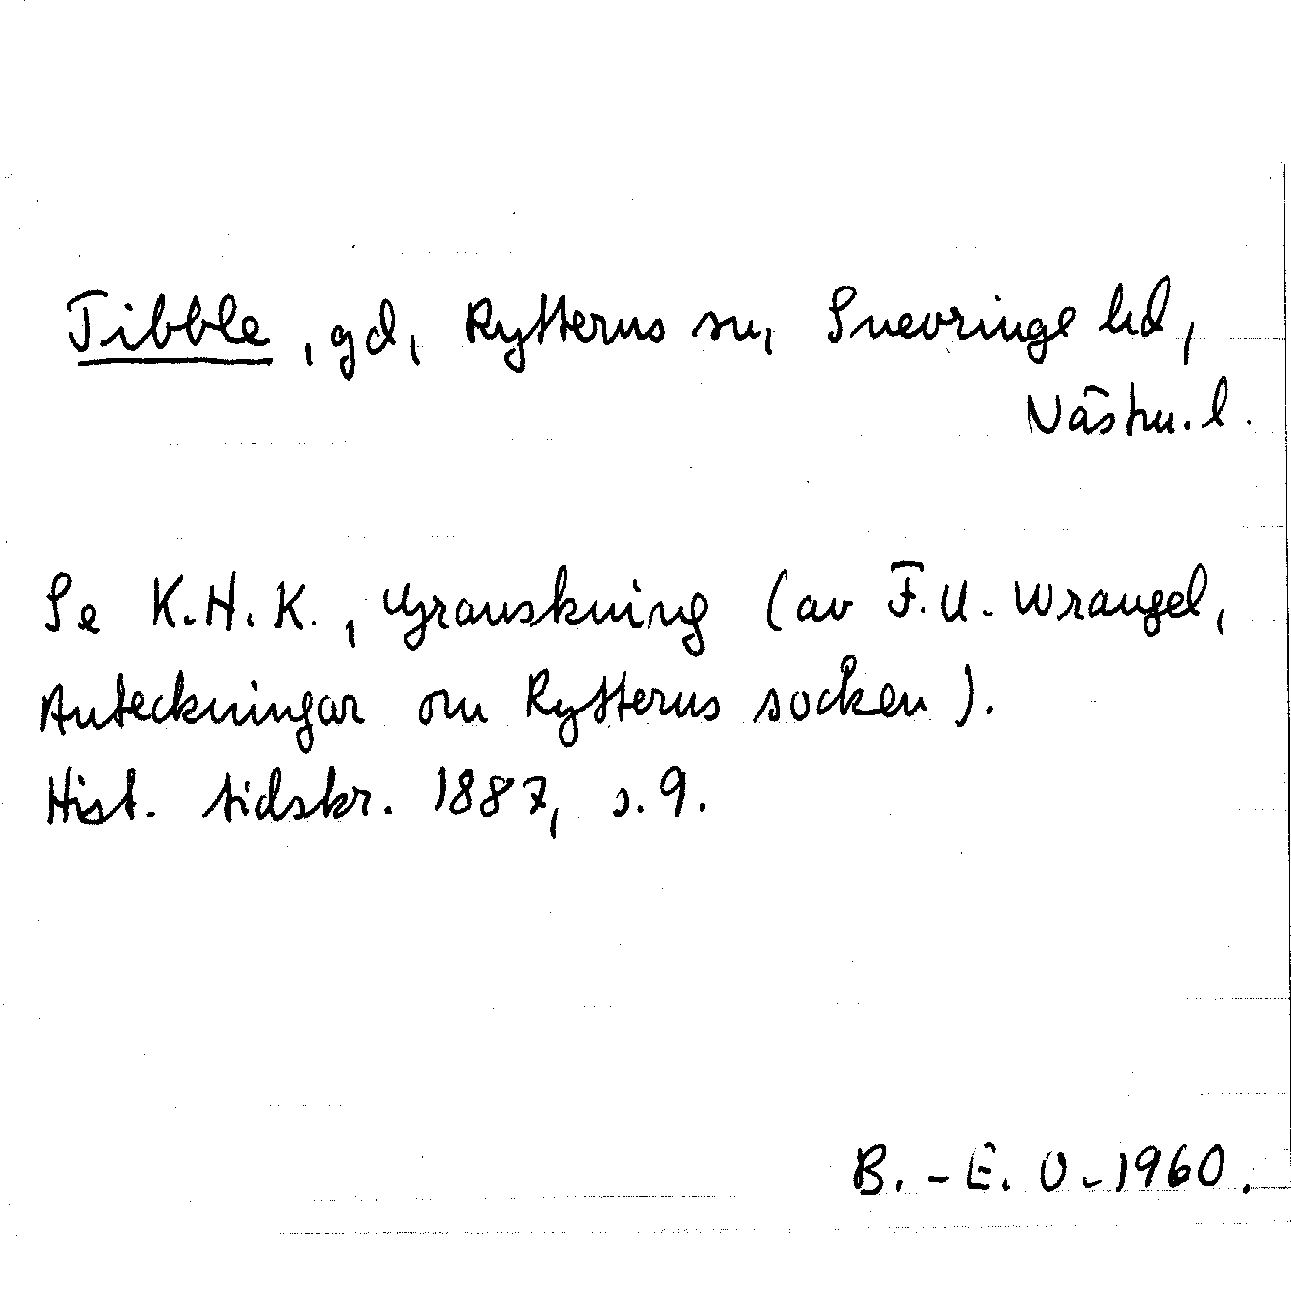 Tibble, gd, Rytterns sn, Snevringe hd,
Västm. l.
Se K.H.K., Granskning (av F.U. Wrangel,
Anteckningar om Rytterns socken).
Hist. tidskr. 1887, s. 9.
B.-E. O. 1960.